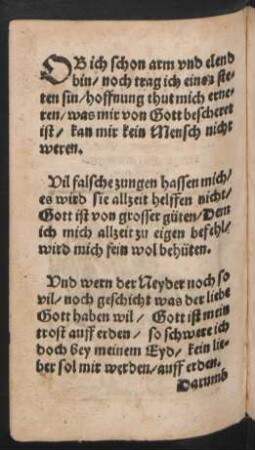 OB ich schon arm vnd elend
bin/ noch trag ich einen ste-
ten sin/ hoffnung thut mich erne-
ren/ was mir von Gott bescheret
ist/ kan mir kein Mensch nicht
weren.
Vil falsche zungen hassen mich/
es wird sie allzeit helffen nicht/
Gott ist von grosser güten/ Dem
ich mich allzeit zu eigen befehl/
wird mich fein wol behüten.
Vnd wern der Neyder noch so
vil/ noch geschicht was der liebe
Gott haben wil/ Gott ist mein
trost auff erden/ so schwere ich
doch bey meinem Eyd/ kein lie-
ber sol mir werden/ auff erden.
Darumb